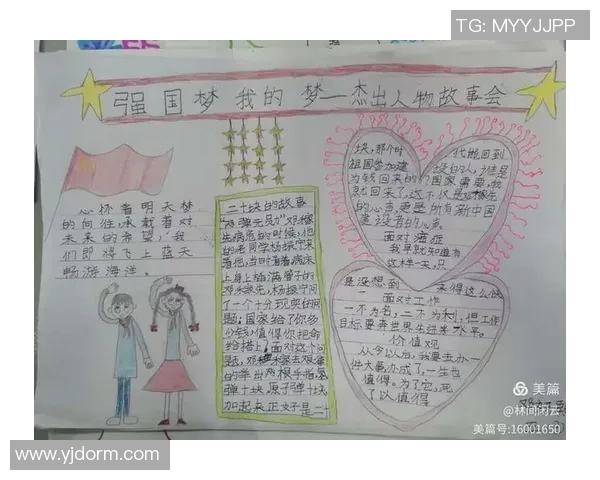 TG: MYYJJPP
强国梦 我的 梦—杰出人物故事会
心怀着明天梦
的向往,承载着对
未来的希望,我
们即将飞上蓝天
畅游海洋。
二十块的故事
"两弹元勋"邓稼
先病危的时候,他
的老同学杨振宁来
看他,当时看着病床
上身上插满管子的
邓稼先,杨振宁问
了一个十分现实的问
题:国家给了你多
少钱,值得你把命
给搭上?面对这个问
题,邓稼先
的举出两根手指氢
弹十块,原子弹十块
加起来正好是二十
块,那个时代能回到
祖国参加建设的人,谁是
为钱回来的?国家需要,我
就回来了,这不仅是邓稼先
的心声,更是所有新中国
建设者的心声
面对癌症
我早就知道有
这样一天,只
是没想到 来得这么快
面对工作
一不为名,二不为利,但工作
目标要奔世界先进水平。
价值观
从今以后,我要去办一
件大事,办成了,一生也
值得。为了它,死
了以值得
美篇
@林间闲云
美篇号:16001650
www.yjdorm.com